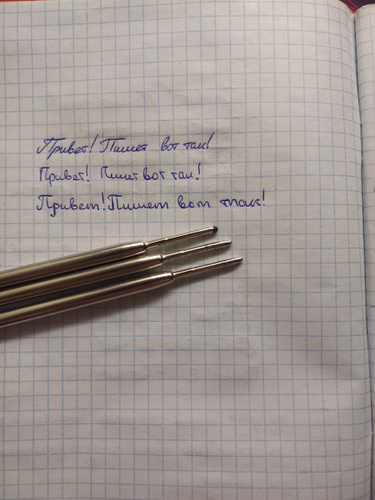 Привет! Пишет вот так!
Привет! Пишет вот так!
Привет! Пишет вот так!